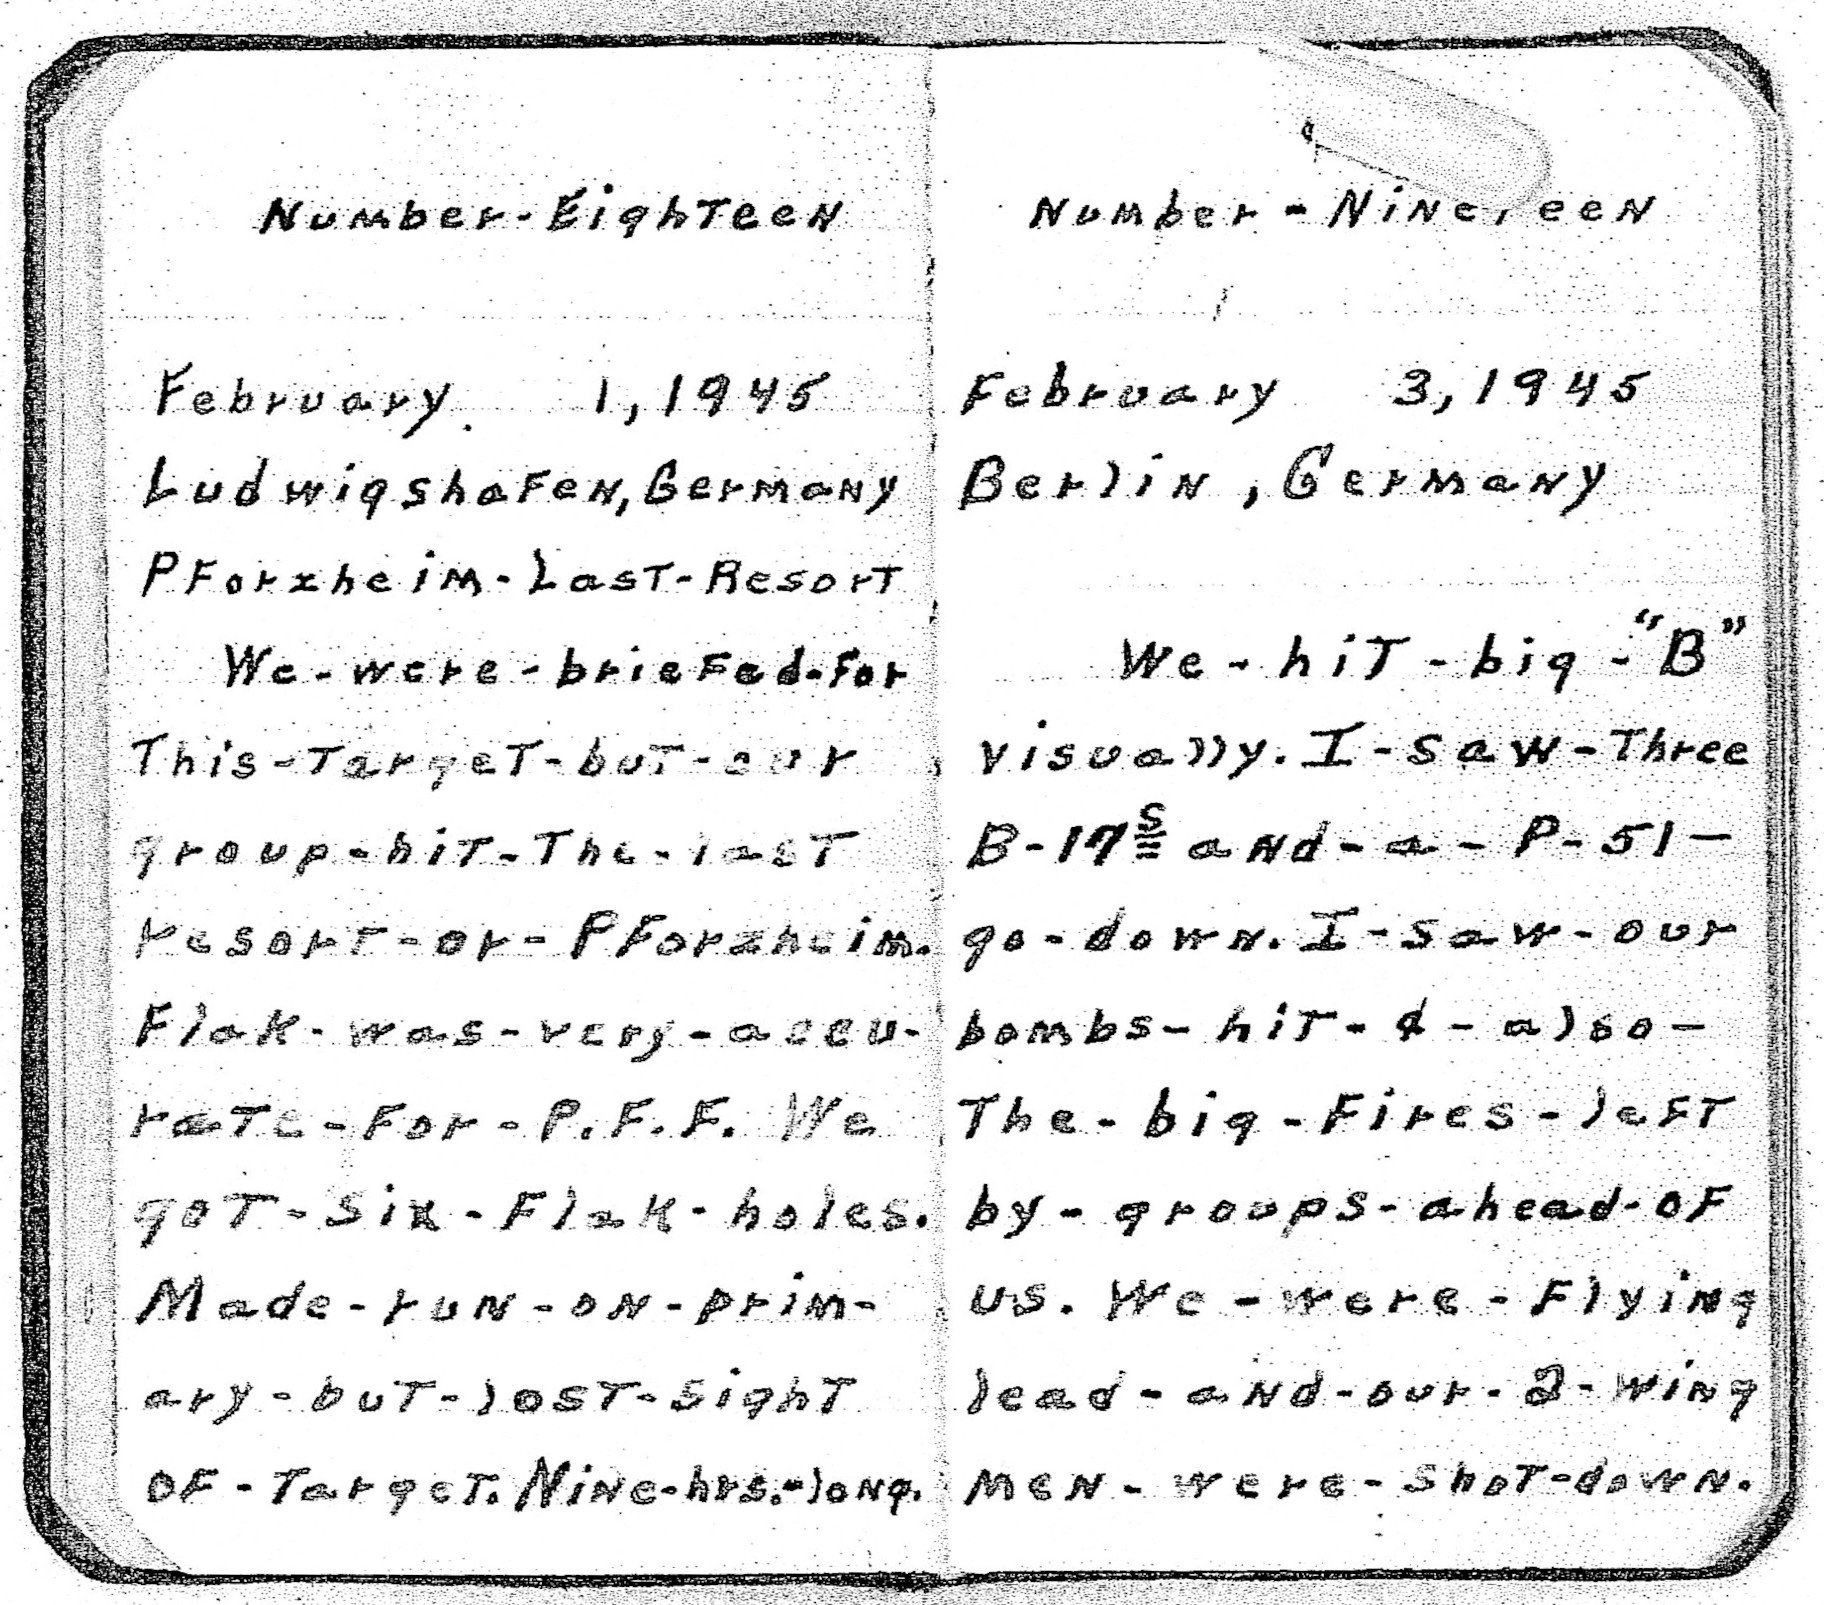 Number-Eighteen
February 1, 1945
Ludwigshafen, Germany
Pforzheim-Last-Resort
We-were-briefed-for
This-Target-but-our
group-hit-The-last
resort-or-Pforzheim.
Flak-was-very-accu-
rate-for-P.F.F. We
got-six-Flak-holes.
Made-run-on-prim-
ary-but-lost-sight
of-Target. Nine-hrs.-long.
Number-Nineteen
February 3, 1945
Berlin, Germany
We-hit-big-"B"
visually. I-saw-Three
B-17s and-a-P-51-
go-down. I-saw-our
bombs-hit-&-also-
The-big-Fires-left
by-groups-ahead-of
us. We-were-Flying
lead-and-our-2-wing
men-were-shot-down.